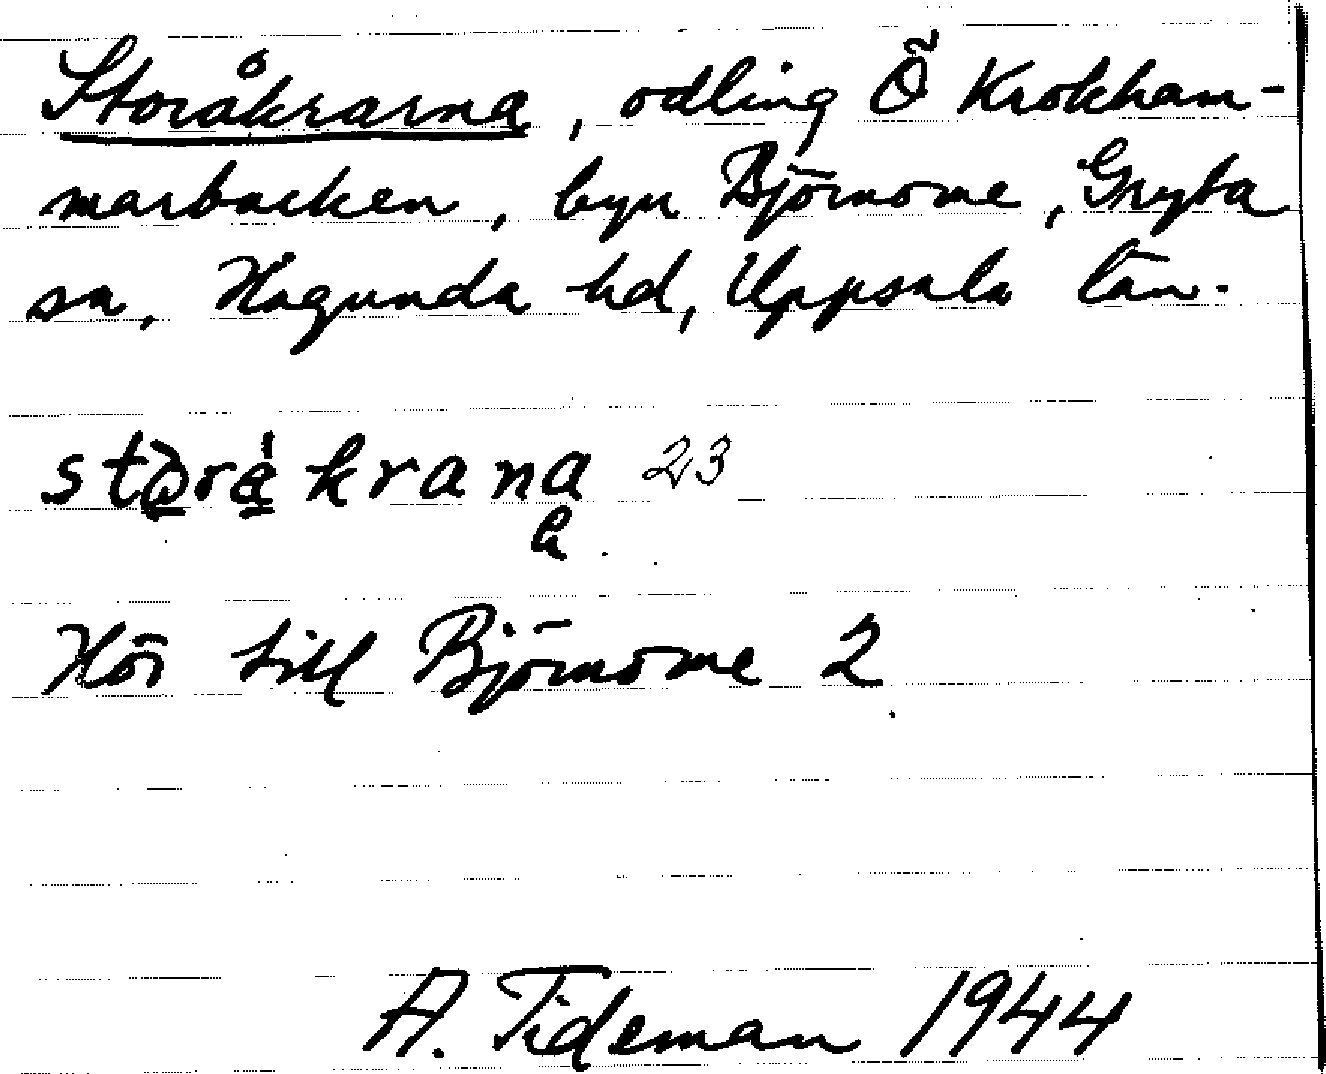 Storåkrarna, odling Ö Krokham-
marbacken, byn Björnome, Gryta
sn, Hagunda hd, Uppsala län.
storåkrana 23
a.
Hör till Björnome 2
A. Tideman 1944